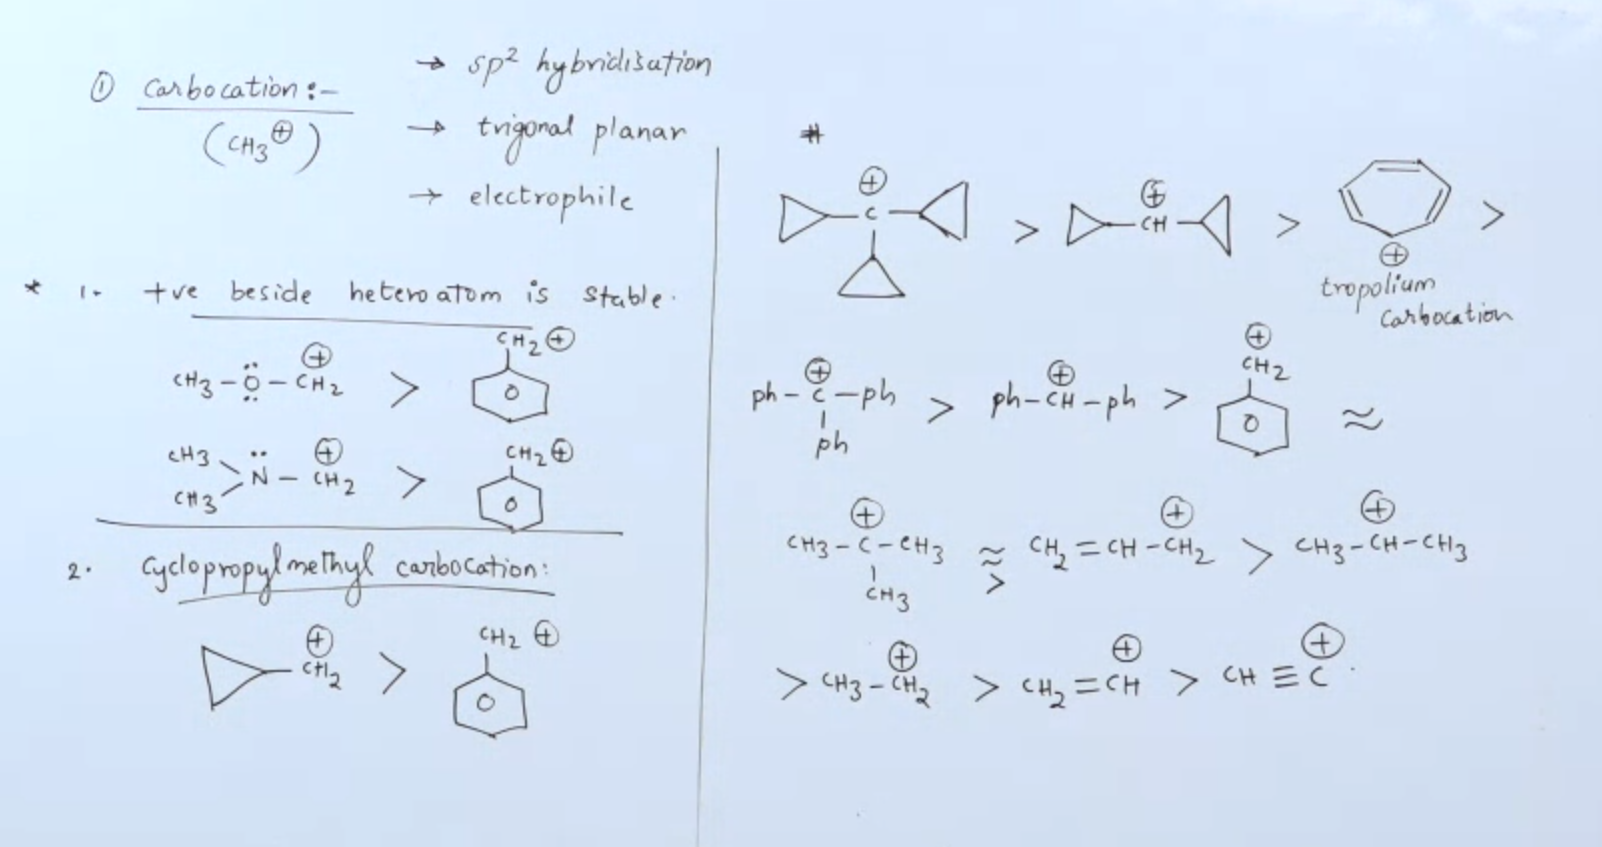 ① Carbocation :-
(CH3⊕)
→ sp² hybridisation
→ trigonal planar
→ electrophile
* 1. +ve beside heteroatom is stable.
CH3 - Ö - CH2⊕ > CH2⊕
CH3 CH3 N̈ - CH2⊕ > CH2⊕
2. Cyclopropylmethyl carbocation:
CH2⊕ > CH2⊕
#
⊕ C > ⊕ CH > ⊕ >
tropolium
Carbocation
ph - C⊕ - ph > ph - CH⊕ - ph > CH2⊕ ≈
ph
CH3 - C⊕ - CH3 ≈ CH2 = CH - CH2⊕ > CH3 - CH⊕ - CH3
CH3 >
> CH3 - CH2⊕ > CH2 = CH⊕ > CH ≡ C⊕ .